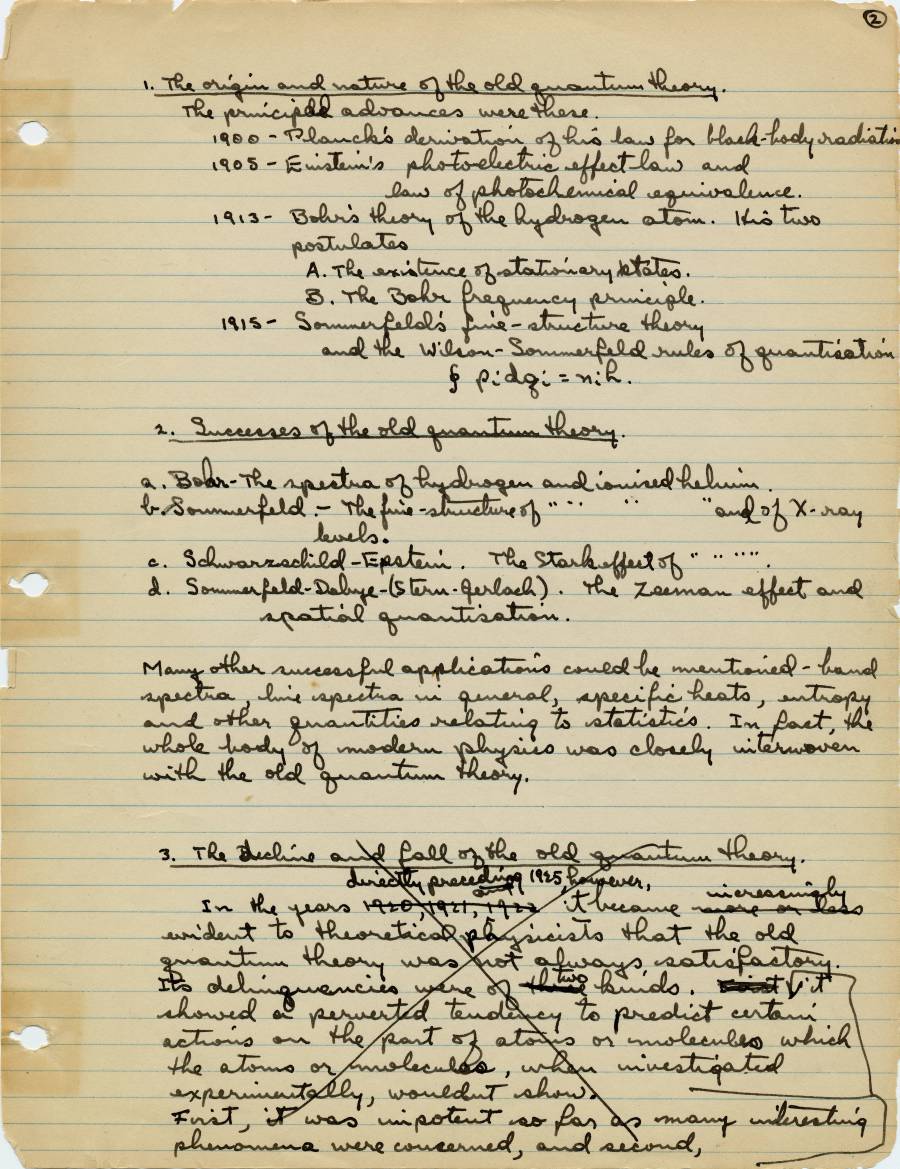 2
1. The origin and nature of the old quantum theory.
The principal advances were these.
1900 - Planck's derivation of his law for black-body radiation
1905 - Einstein's photoelectric effect law and
law of photochemical equivalence.
1913 - Bohr's theory of the hydrogen atom. His two
postulates
A. The existence of stationary states.
B. The Bohr frequency principle.
1915 - Sommerfeld's fine-structure theory
and the Wilson-Sommerfeld rules of quantisation
∮ pidqi = nih.
2. Successes of the old quantum theory.
a. Bohr - The spectra of hydrogen and ionised helium.
b. Sommerfeld - The fine-structure of " " " " and of X-ray
levels.
c. Schwarzschild-Epstein. The Stark effect of " " " ".
d. Sommerfeld-Debye-(Stern-Gerlach). The Zeeman effect and
spatial quantisation.
Many other successful applications could be mentioned - band
spectra, line spectra in general, specific heats, entropy
and other quantities relating to statistics. In fact, the
whole body of modern physics was closely interwoven
with the old quantum theory.
3. The Decline and fall of the old quantum theory.
directly preceding 1925, however, increasingly
In the years 1920, 1921, 1922 it became more or less
evident to theoretical physicists that the old
quantum theory was not always satisfactory.
two
Its delinquencies were of three kinds. First it
showed a perverted tendency to predict certain
actions on the part of atoms or molecules which
the atoms or molecules, when investigated
experimentally, wouldnt show.
First, it was impotent so far as many interesting
phenomena were concerned, and second,